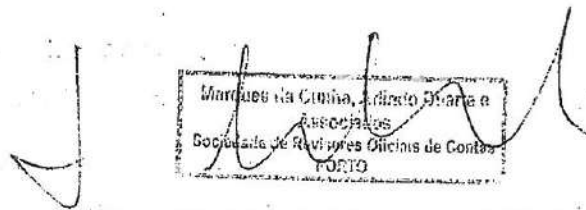 Marques da Cunha, Arlindo Duarte e
Associados
Sociedade de Revisores Oficiais de Contas
PORTO